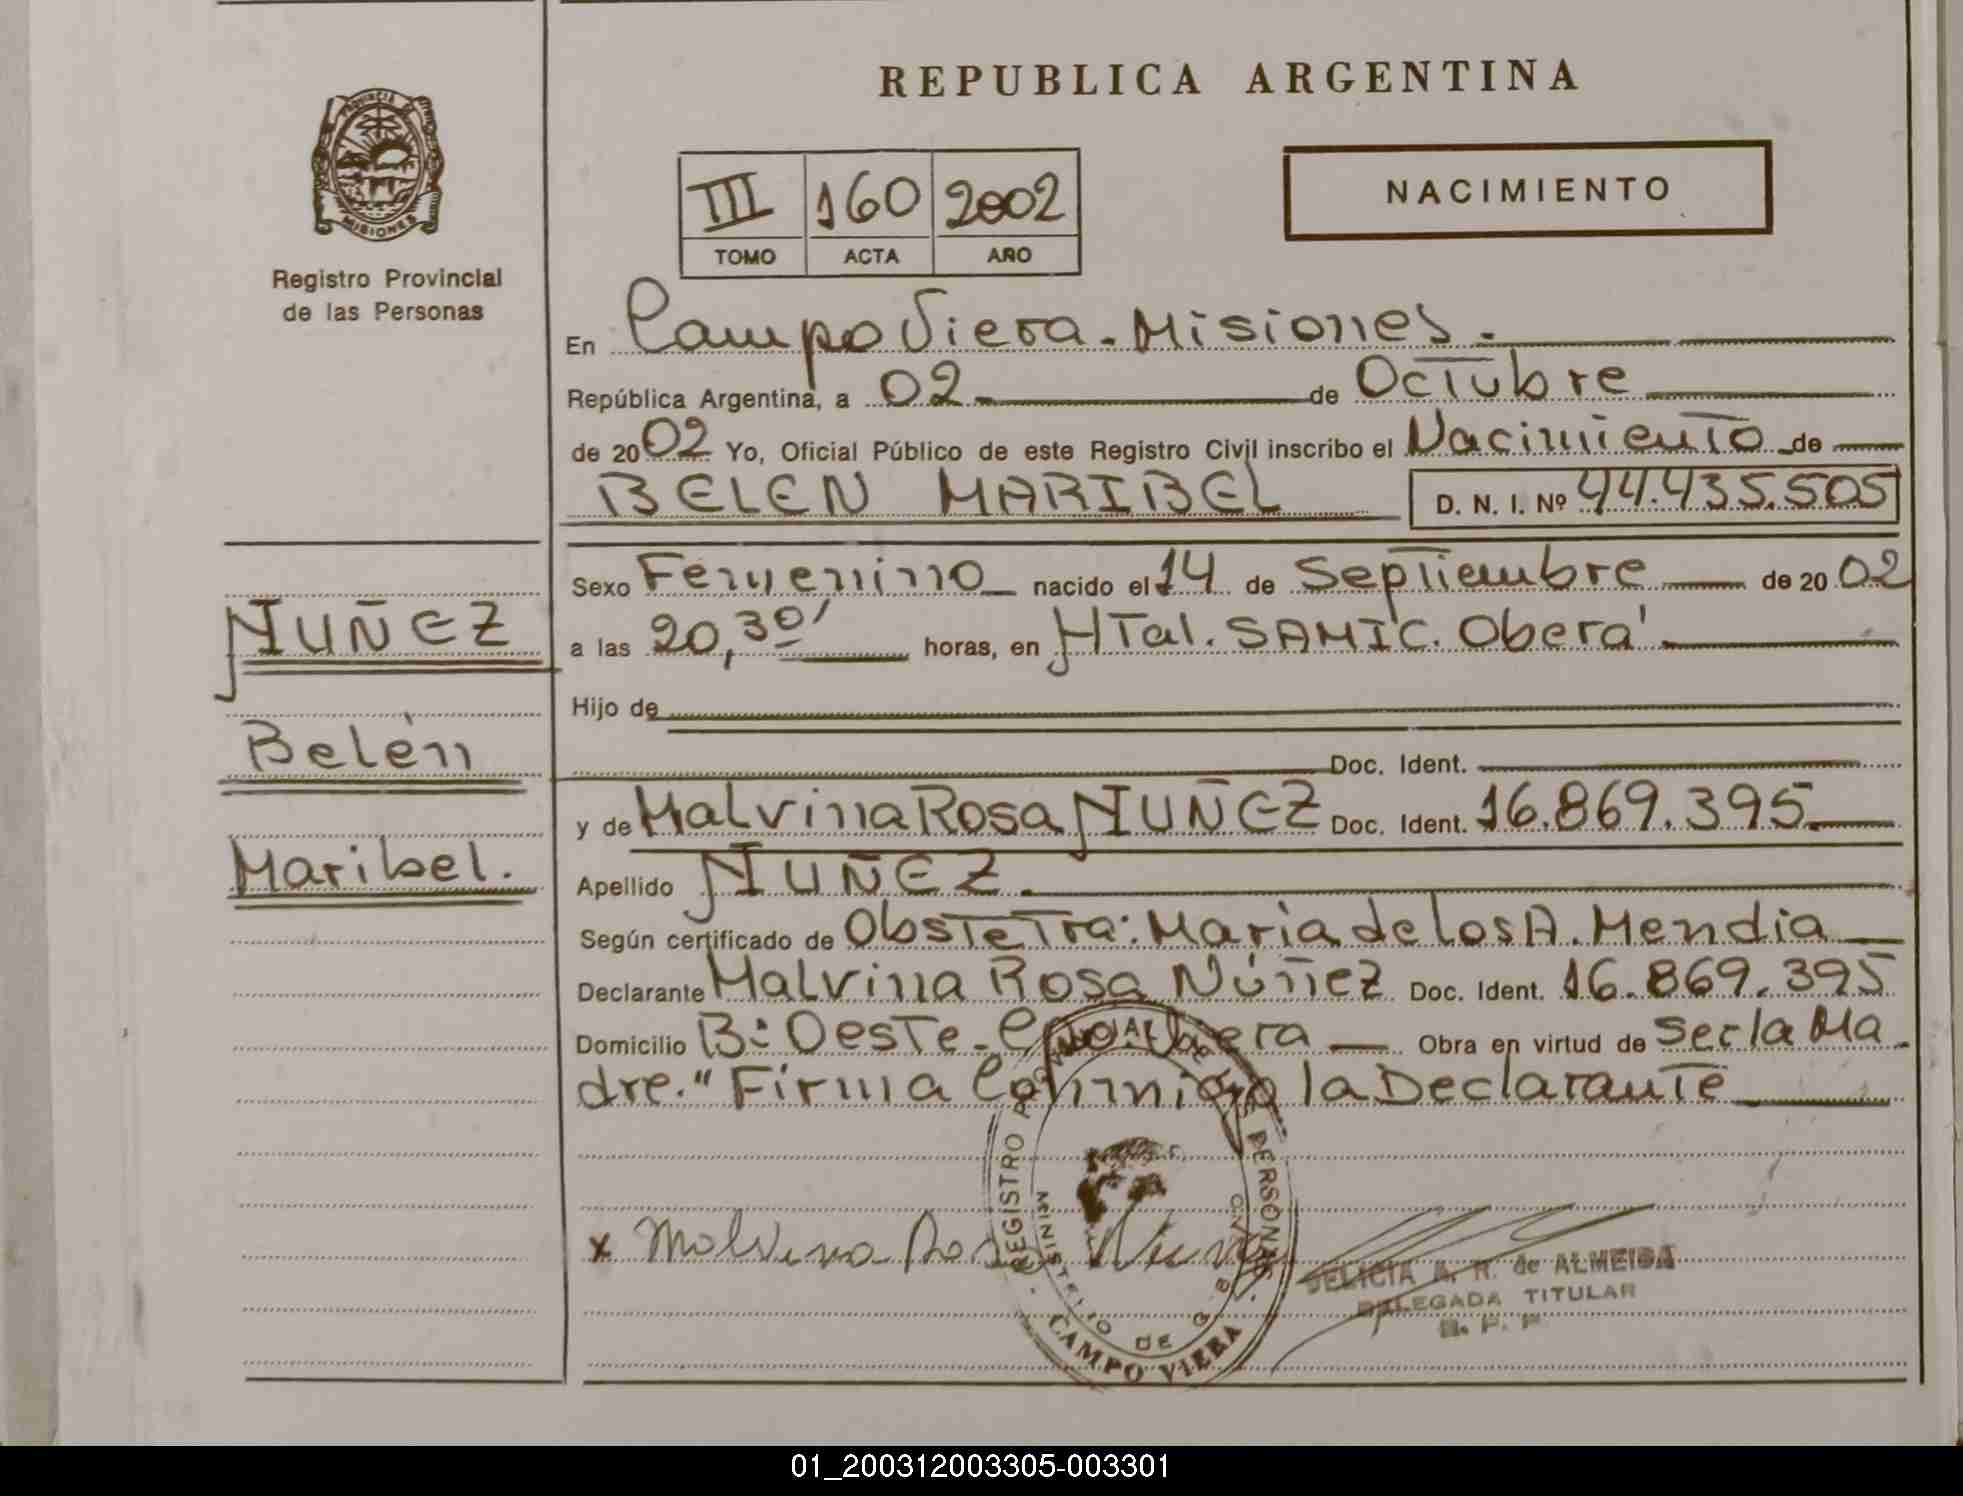 REPUBLICA ARGENTINA
PROVINCIA DE MISIONES
Registro Provincial
de las Personas
III 160 2002
TOMO ACTA AÑO
NACIMIENTO
En Campo Viera - Misiones.
República Argentina, a 02 de Octubre
de 2002 Yo, Oficial Público de este Registro Civil inscribo el Nacimiento de
BELEN MARIBEL D. N. I. Nº 44.435.505
Sexo Femenino nacido el 14 de Septiembre de 20 02
a las 20,30' horas, en HTal. SAMIC. Oberá
Hijo de
Doc. Ident.
y de Malvina Rosa NUÑEZ Doc. Ident. 16.869.395
Apellido NUÑEZ.
Según certificado de ObsteTra: María de los A. Mendia
Declarante Malvina Rosa Núñez Doc. Ident. 16.869.395
Domicilio B: Oeste - Cpo Viera Obra en virtud de ser la Ma
dre." Firma Conmigo la Declarante
NUÑEZ
Belén
Maribel.
x Malvina Rosa Nuñez
REGISTRO PROVINCIAL DE LAS PERSONAS
MINISTERIO DE GOB
CAMPO VIERA
FELICIA A. R. de ALMEIDA
DELEGADA TITULAR
R. P. P.
01_200312003305-003301